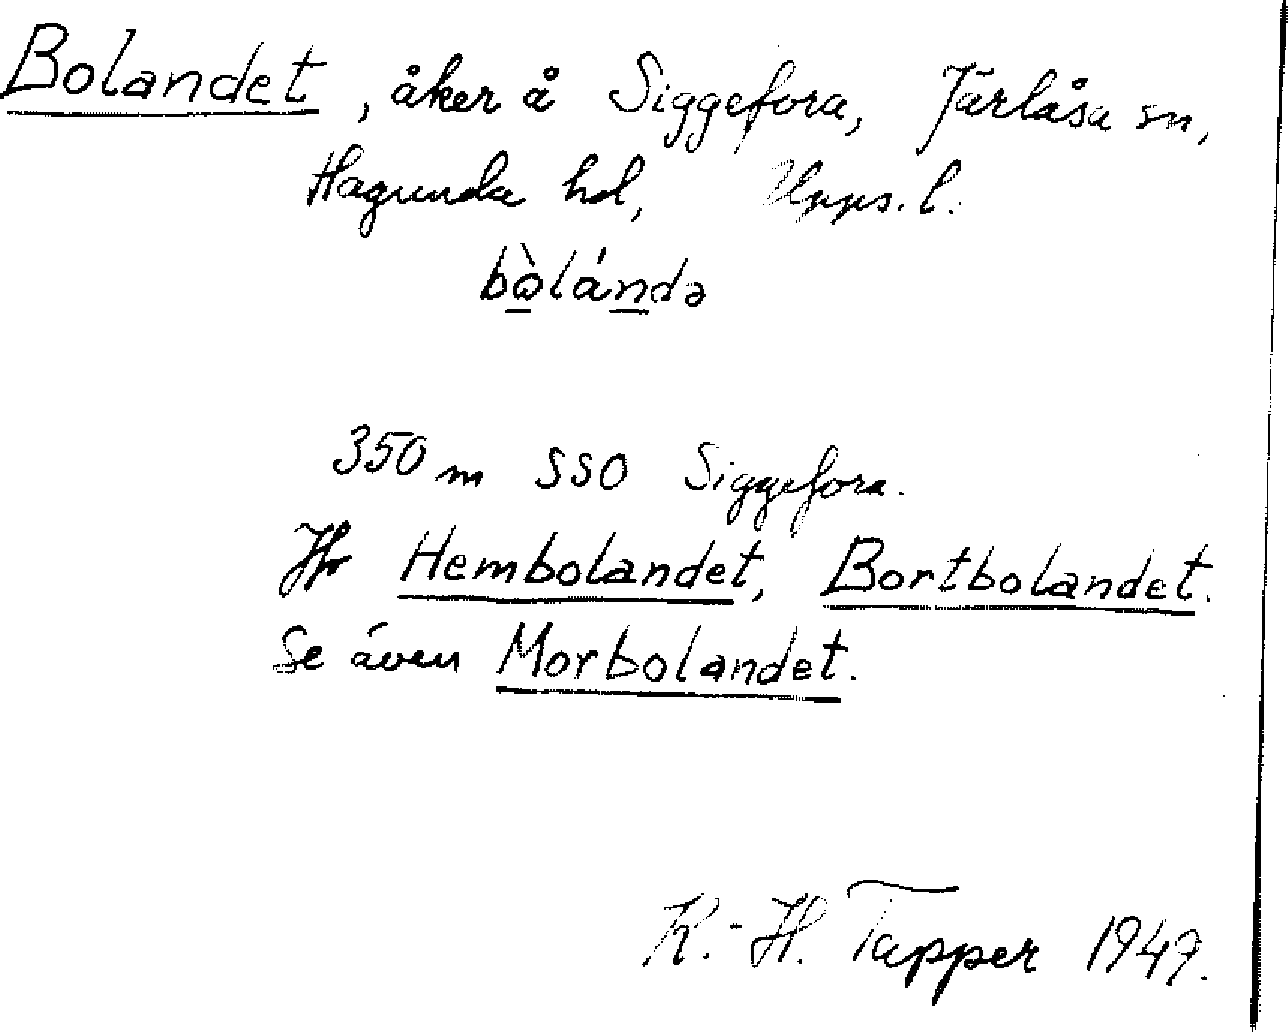 Bolandet, åker å Siggefora, Järlåsa sn,
Hagunda hd, Upps. l.
bò̲lán̲də
350 m SSO Siggefora.
Jfr Hembolandet, Bortbolandet.
Se även Morbolandet.
K.-H. Tapper 1949.